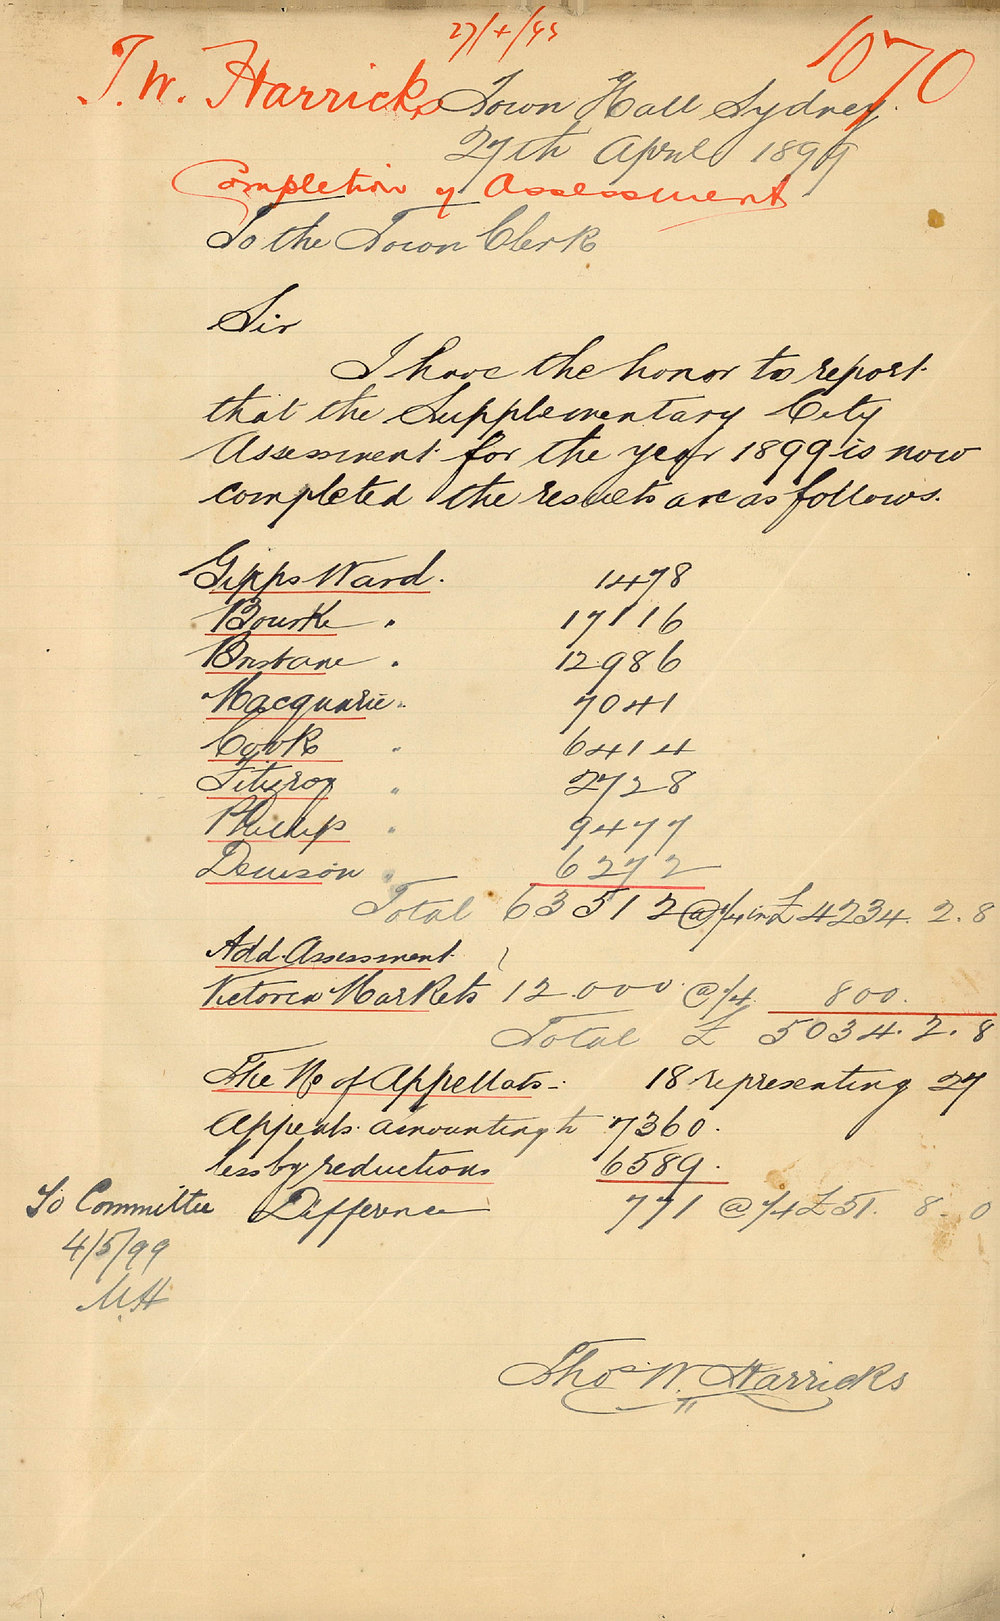 27/4/99
1070
T. W. Harricks
Town Hall Sydney.
27th April 1899
Completion of Assessment
To the Town Clerk
Sir
I have the honor to report
that the Supplementary City
Assessment for the year 1899 is now
completed the results are as follows.
Gipps Ward. 1478
Bourke " 17116
Brisbane " 12986
Macquarie " 7041
Cook " 6414
Fitzroy " 2728
Phillip " 9477
Denison " 6272
Total 63512 @ 1/4 in £ 4234. 2. 8
Add Assessment
Victoria Markets 12.000 @ 1/4 800.
Total £ 5034. 2. 8
The No of Appellats - 18 representing 27
Appeals amounting to 7360.
less by reductions 6589.
Difference 771 @ 1/4 £ 51. 8 - 0
To Committee
4/5/99
Thos. W. Harricks